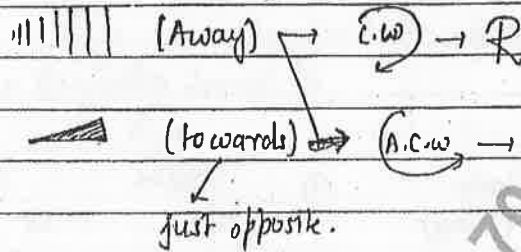 (Away) → C.W → R
(towards) → A.C.W →
just opposite.